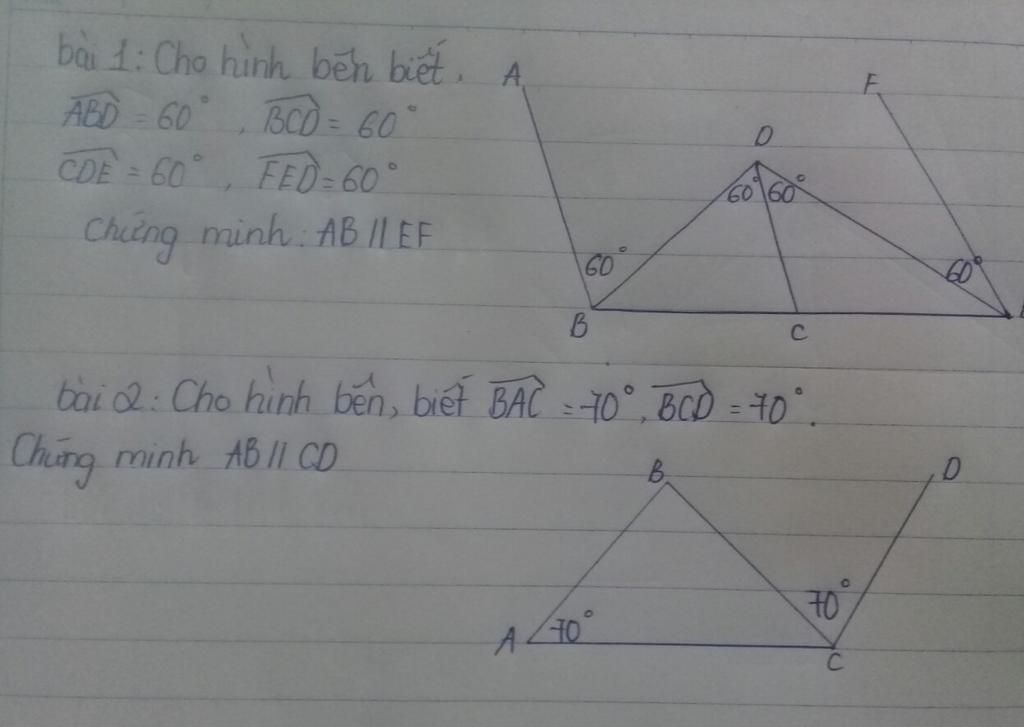 bài 1: Cho hình bên biết.
ABD = 60°, BCD = 60°
CDE = 60°, FED = 60°
Chứng minh: AB // EF
A
F
D
60° 60°
60°
60°
B
C
bài 2: Cho hình bên, biết BAC = 70°, BCD = 70°.
Chứng minh AB // CD
B
D
70°
70°
A
C